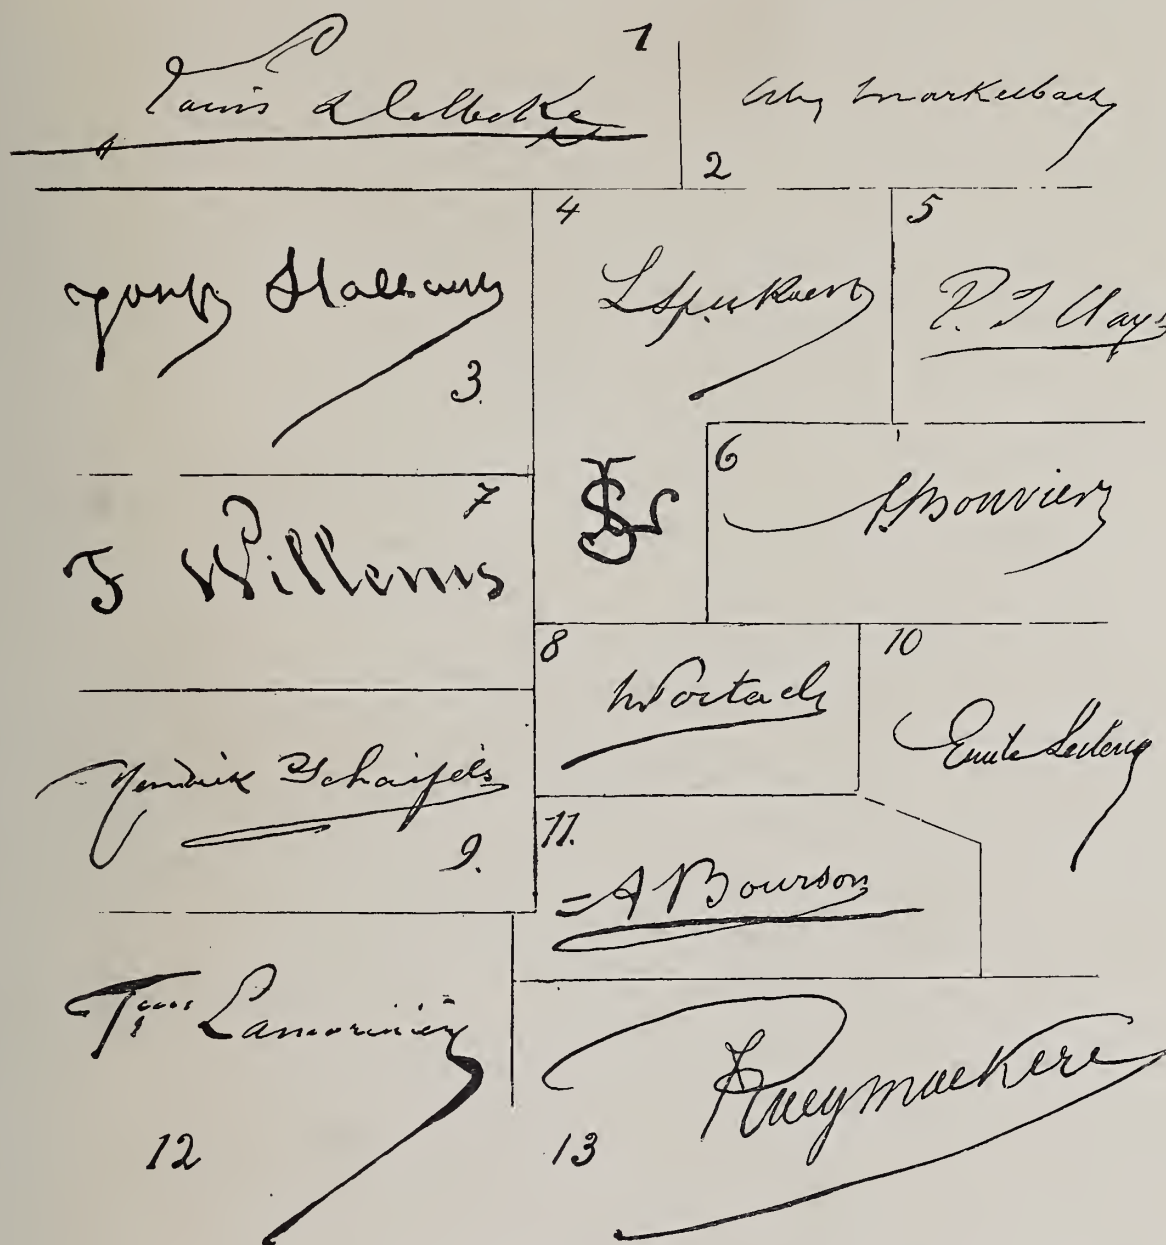 1
Louis Dubbeke
2
Markelbach
3.
Joseph Stallaert
4
L Speekaert
5
P. J Clays
6
A Bouvier
7
F Willems
8
Portaels
9.
Hendrik Schaefels
10
Emile Leclercq
11.
A Bourson
12
Lamorinière
13
Raeymaekers